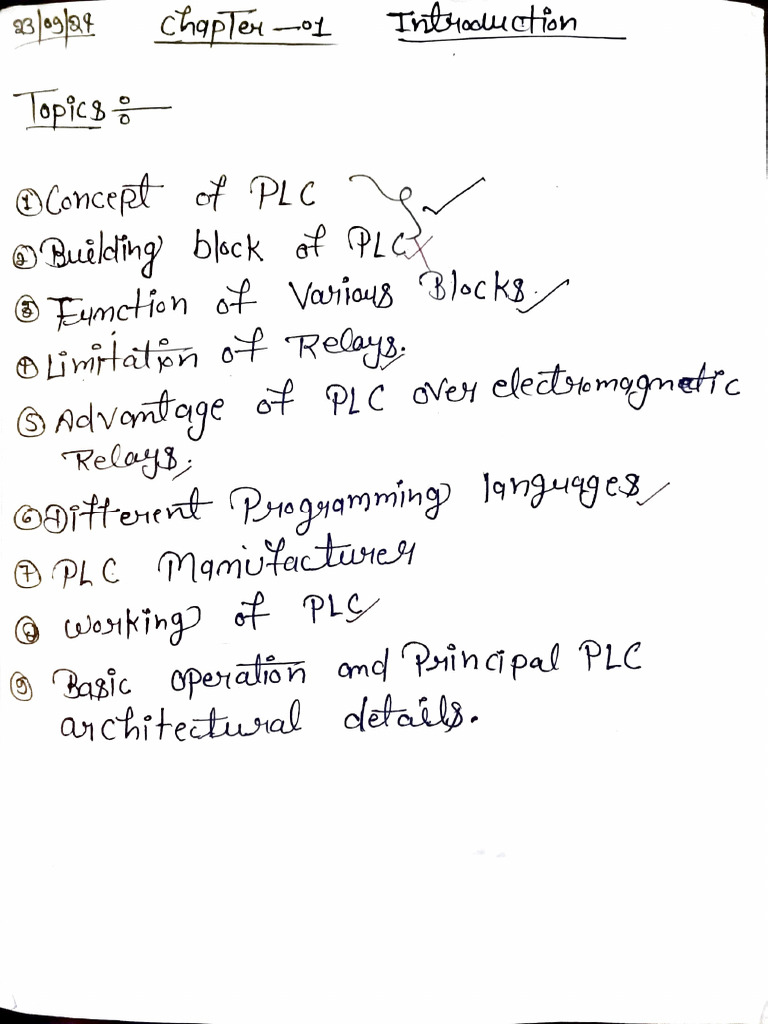 23/09/24 Chapter-01 Introduction
Topics :-
① Concept of PLC
② Building block of PLC
③ Function of Various Blocks.
④ Limitation of Relays.
⑤ Advantage of PLC over electromagnetic
Relays.
⑥ Different Programming languages
⑦ PLC Manufacturer
⑧ Working of PLC
⑨ Basic operation and Principal PLC
architectural details.